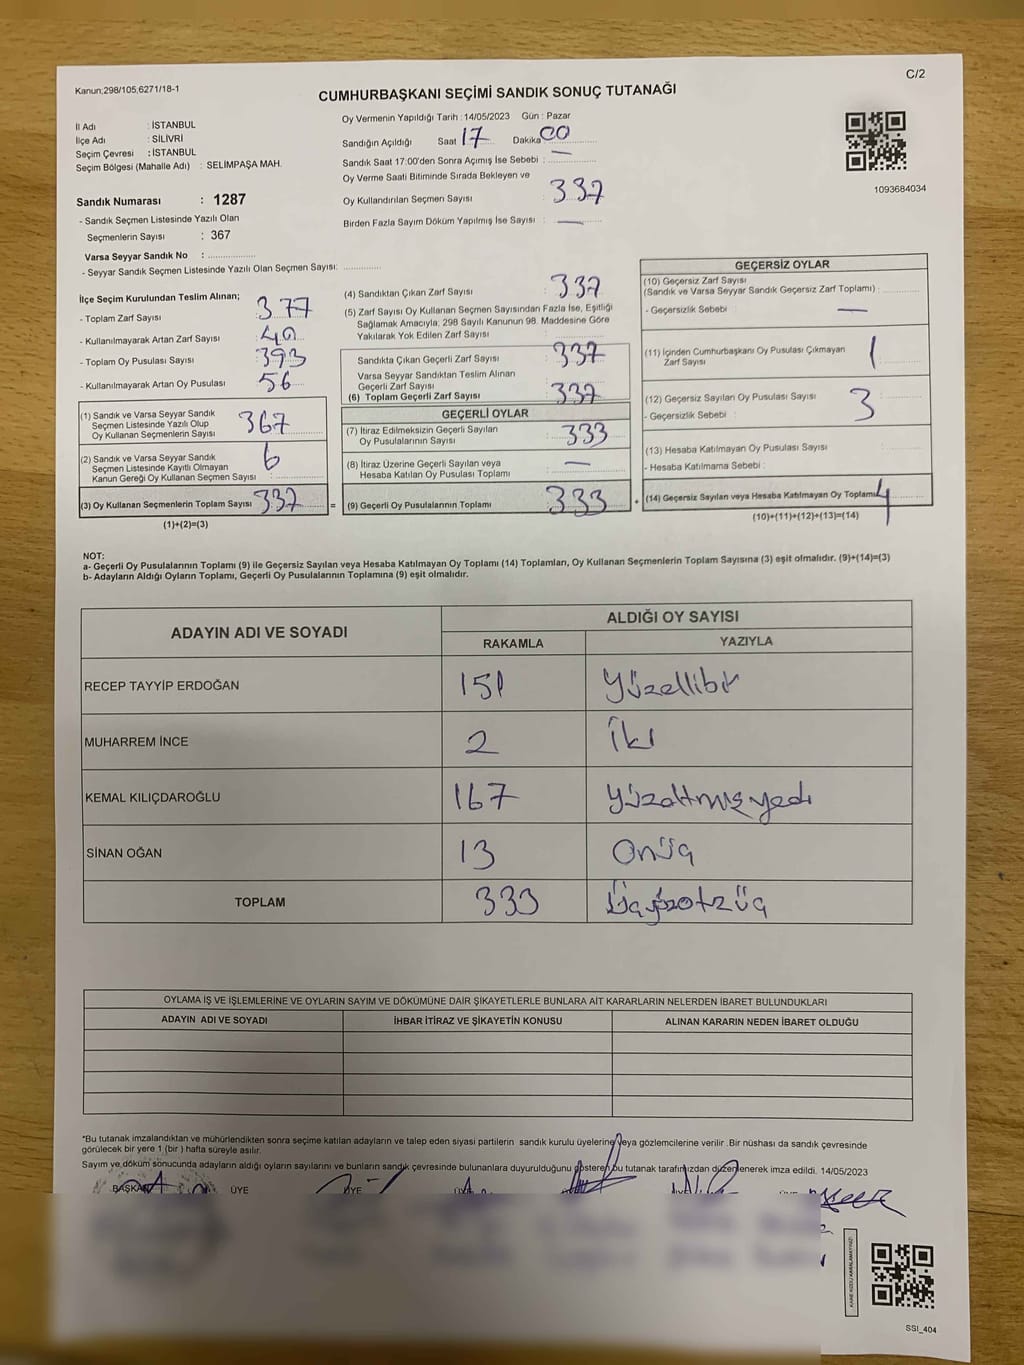 Kanun;298/105,6271/18-1
C/2
CUMHURBAŞKANI SEÇİMİ SANDIK SONUÇ TUTANAĞI
İl Adı : İSTANBUL
İlçe Adı : SİLİVRİ
Seçim Çevresi : İSTANBUL
Seçim Bölgesi (Mahalle Adı) : SELİMPAŞA MAH.
Oy Vermenin Yapıldığı Tarih : 14/05/2023 Gün : Pazar
Sandığın Açıldığı Saat 17 Dakika 00
Sandık Saat 17:00'den Sonra Açılmış İse Sebebi : —
Oy Verme Saati Bitiminde Sırada Bekleyen ve
Oy Kullandırılan Seçmen Sayısı : 337
Birden Fazla Sayım Döküm Yapılmış İse Sayısı : —
1093684034
Sandık Numarası : 1287
- Sandık Seçmen Listesinde Yazılı Olan
Seçmenlerin Sayısı : 367
Varsa Seyyar Sandık No :
- Seyyar Sandık Seçmen Listesinde Yazılı Olan Seçmen Sayısı:
İlçe Seçim Kurulundan Teslim Alınan;
- Toplam Zarf Sayısı 377
- Kullanılmayarak Artan Zarf Sayısı 40
- Toplam Oy Pusulası Sayısı 393
- Kullanılmayarak Artan Oy Pusulası 56
(1) Sandık ve Varsa Seyyar Sandık
Seçmen Listesinde Yazılı Olup
Oy Kullanan Seçmenlerin Sayısı 367
(2) Sandık ve Varsa Seyyar Sandık
Seçmen Listesinde Kayıtlı Olmayan
Kanun Gereği Oy Kullanan Seçmen Sayısı : 6
(3) Oy Kullanan Seçmenlerin Toplam Sayısı 337
(1)+(2)=(3)
=
(4) Sandıktan Çıkan Zarf Sayısı 337
(5) Zarf Sayısı Oy Kullanan Seçmen Sayısından Fazla İse, Eşitliği
Sağlamak Amacıyla, 298 Sayılı Kanunun 98. Maddesine Göre
Yakılarak Yok Edilen Zarf Sayısı
Sandıkta Çıkan Geçerli Zarf Sayısı : 337
Varsa Seyyar Sandıktan Teslim Alınan
Geçerli Zarf Sayısı
(6) Toplam Geçerli Zarf Sayısı : 337
GEÇERLİ OYLAR
(7) İtiraz Edilmeksizin Geçerli Sayılan
Oy Pusulalarının Sayısı : 333
(8) İtiraz Üzerine Geçerli Sayılan veya
Hesaba Katılan Oy Pusulası Toplamı : —
(9) Geçerli Oy Pusulalarının Toplamı 333
+
GEÇERSİZ OYLAR
(10) Geçersiz Zarf Sayısı
(Sandık ve Varsa Seyyar Sandık Geçersiz Zarf Toplamı) :
- Geçersizlik Sebebi : —
(11) İçinden Cumhurbaşkanı Oy Pusulası Çıkmayan
Zarf Sayısı : 1
(12) Geçersiz Sayılan Oy Pusulası Sayısı :
- Geçersizlik Sebebi : 3
(13) Hesaba Katılmayan Oy Pusulası Sayısı :
- Hesaba Katılmama Sebebi :
(14) Geçersiz Sayılan veya Hesaba Katılmayan Oy Toplamı 4
(10)+(11)+(12)+(13)=(14)
NOT:
a- Geçerli Oy Pusulalarının Toplamı (9) ile Geçersiz Sayılan veya Hesaba Katılmayan Oy Toplamı (14) Toplamları, Oy Kullanan Seçmenlerin Toplam Sayısına (3) eşit olmalıdır. (9)+(14)=(3)
b- Adayların Aldığı Oyların Toplamı, Geçerli Oy Pusulalarının Toplamına (9) eşit olmalıdır.
ADAYIN ADI VE SOYADI
ALDIĞI OY SAYISI
RAKAMLA YAZIYLA
RECEP TAYYİP ERDOĞAN 151 Yüzellibir
MUHARREM İNCE 2 İki
KEMAL KILIÇDAROĞLU 167 Yüzaltmışyedi
SİNAN OĞAN 13 Onüç
TOPLAM 333 Üçyüzotzüç
OYLAMA İŞ VE İŞLEMLERİNE VE OYLARIN SAYIM VE DÖKÜMÜNE DAİR ŞİKAYETLERLE BUNLARA AİT KARARLARIN NELERDEN İBARET BULUNDUKLARI
ADAYIN ADI VE SOYADI İHBAR İTİRAZ VE ŞİKAYETİN KONUSU ALINAN KARARIN NEDEN İBARET OLDUĞU
*Bu tutanak imzalandıktan ve mühürlendikten sonra seçime katılan adayların ve talep eden siyasi partilerin sandık kurulu üyelerine veya gözlemcilerine verilir .Bir nüshası da sandık çevresinde
görülecek bir yere 1 (bir ) hafta süreyle asılır.
Sayım ve döküm sonucunda adayların aldığı oyların sayılarını ve bunların sandık çevresinde bulunanlara duyurulduğunu gösteren bu tutanak tarafımızdan düzenlenerek imza edildi. 14/05/2023
BAŞKAN ÜYE ÜYE ÜYE
SSI_404